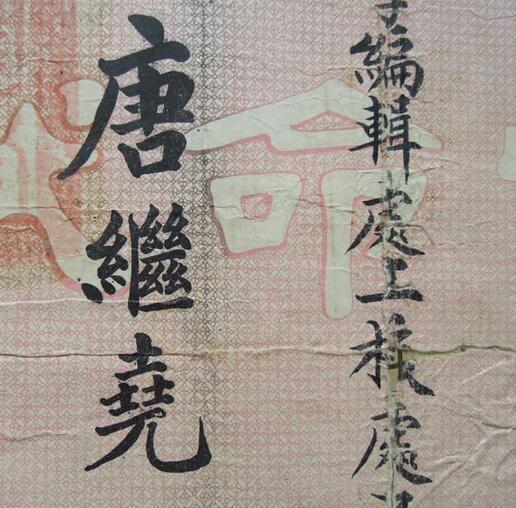 編輯處上校處
命
唐繼堯